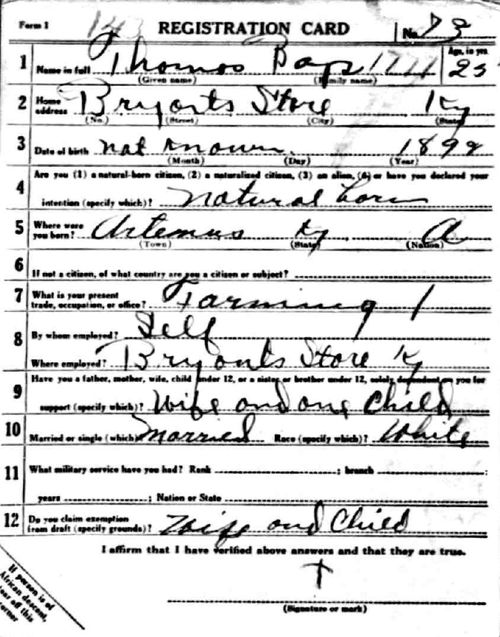 Form 1 143 REGISTRATION CARD No. 73
1 Name in full Thomas Bays 1711 Age, in yrs. 25
(Given name) (Family name)
2 Home address Bryants Store Ky
(No.) (Street) (City) (State)
3 Date of birth not known 1892
(Month) (Day) (Year)
4 Are you (1) a natural-born citizen, (2) a naturalized citizen, (3) an alien, (4) or have you declared your
intention (specify which)? Natural born
5 Where were you born? Artemus Ky A
(Town) (State) (Nation)
6 If not a citizen, of what country are you a citizen or subject?
7 What is your present trade, occupation, or office? Farming 1
8 By whom employed? Self
Where employed? Bryants Store Ky
9 Have you a father, mother, wife, child under 12, or a sister or brother under 12, solely dependent on you for
support (specify which)? Wife and one Child
10 Married or single (which)? Married Race (specify which)? White
11 What military service have you had? Rank ; branch
years ; Nation or State
12 Do you claim exemption from draft (specify grounds)? Wife and Child
I affirm that I have verified above answers and that they are true.
(Signature or mark)
If person is of
African descent,
tear off this
corner